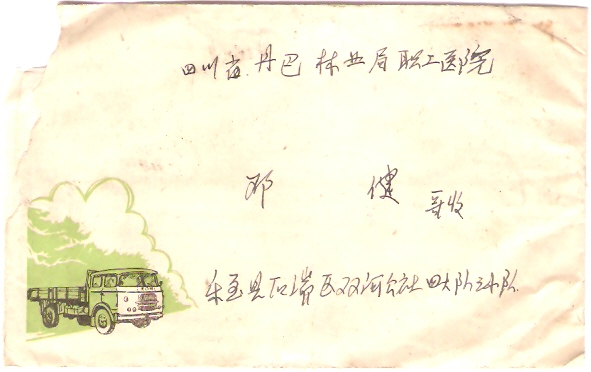 四川省丹巴林业局职工医院
邓健哥收
乐至县石湍区双河公社四大队三小队